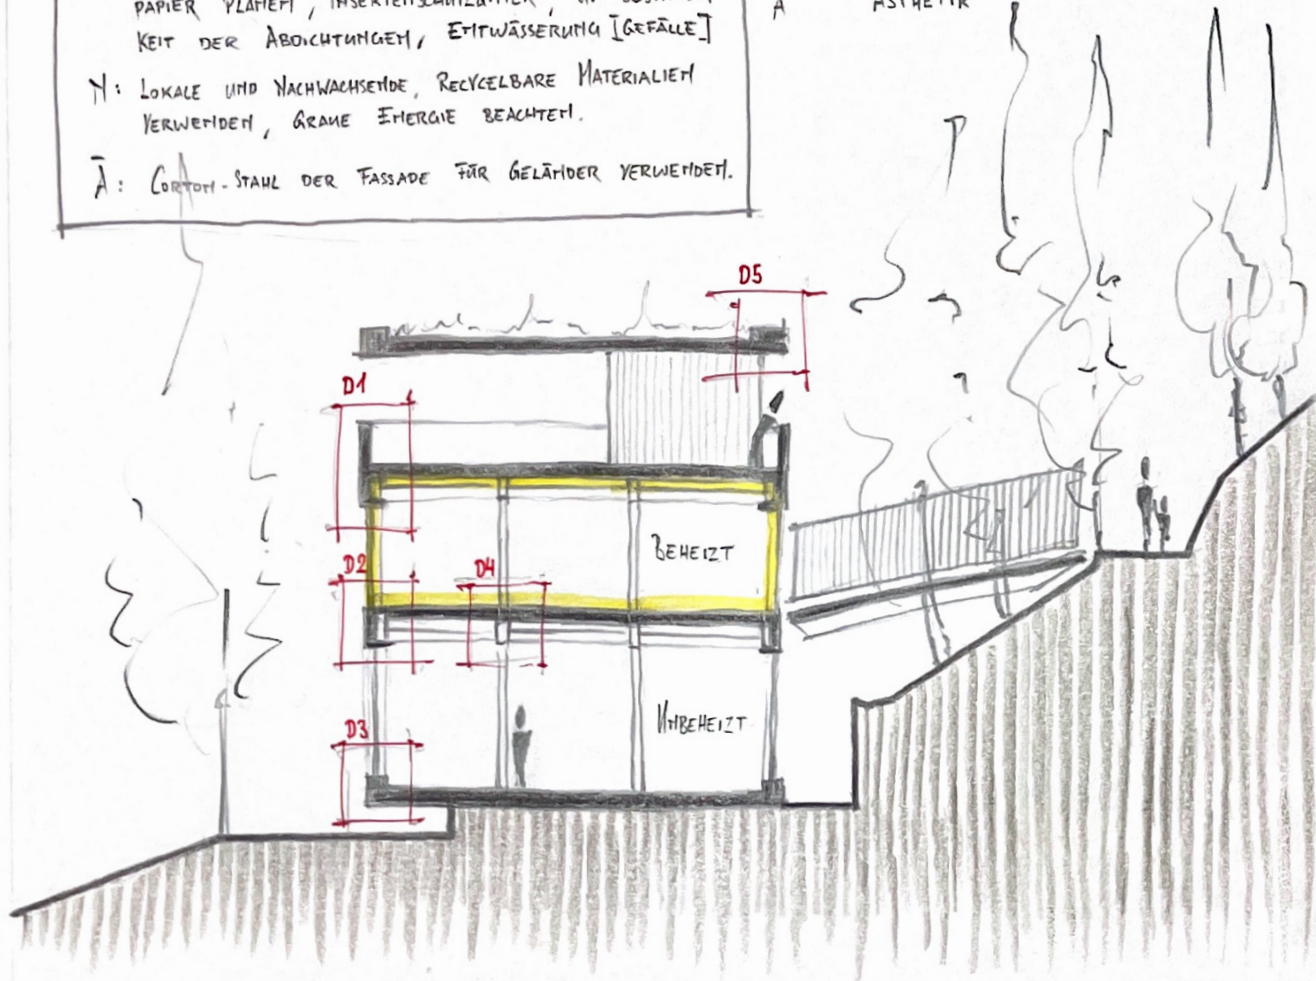 PAPIER PLANEN, INSEKTENSCHUTZGITTER,
KEIT DER ABDICHTUNGEN, ENTWÄSSERUNG [GEFÄLLE]
N: LOKALE UND NACHWACHSENDE, RECYCELBARE MATERIALIEN
VERWENDEN, GRAUE ENERGIE BEACHTEN.
Ä: CORTON-STAHL DER FASSADE FÜR GELÄNDER VERWENDEN.
Ä ÄSTHETIK
D5
D1
BEHEIZT
D2
D4
UNBEHEIZT
D3